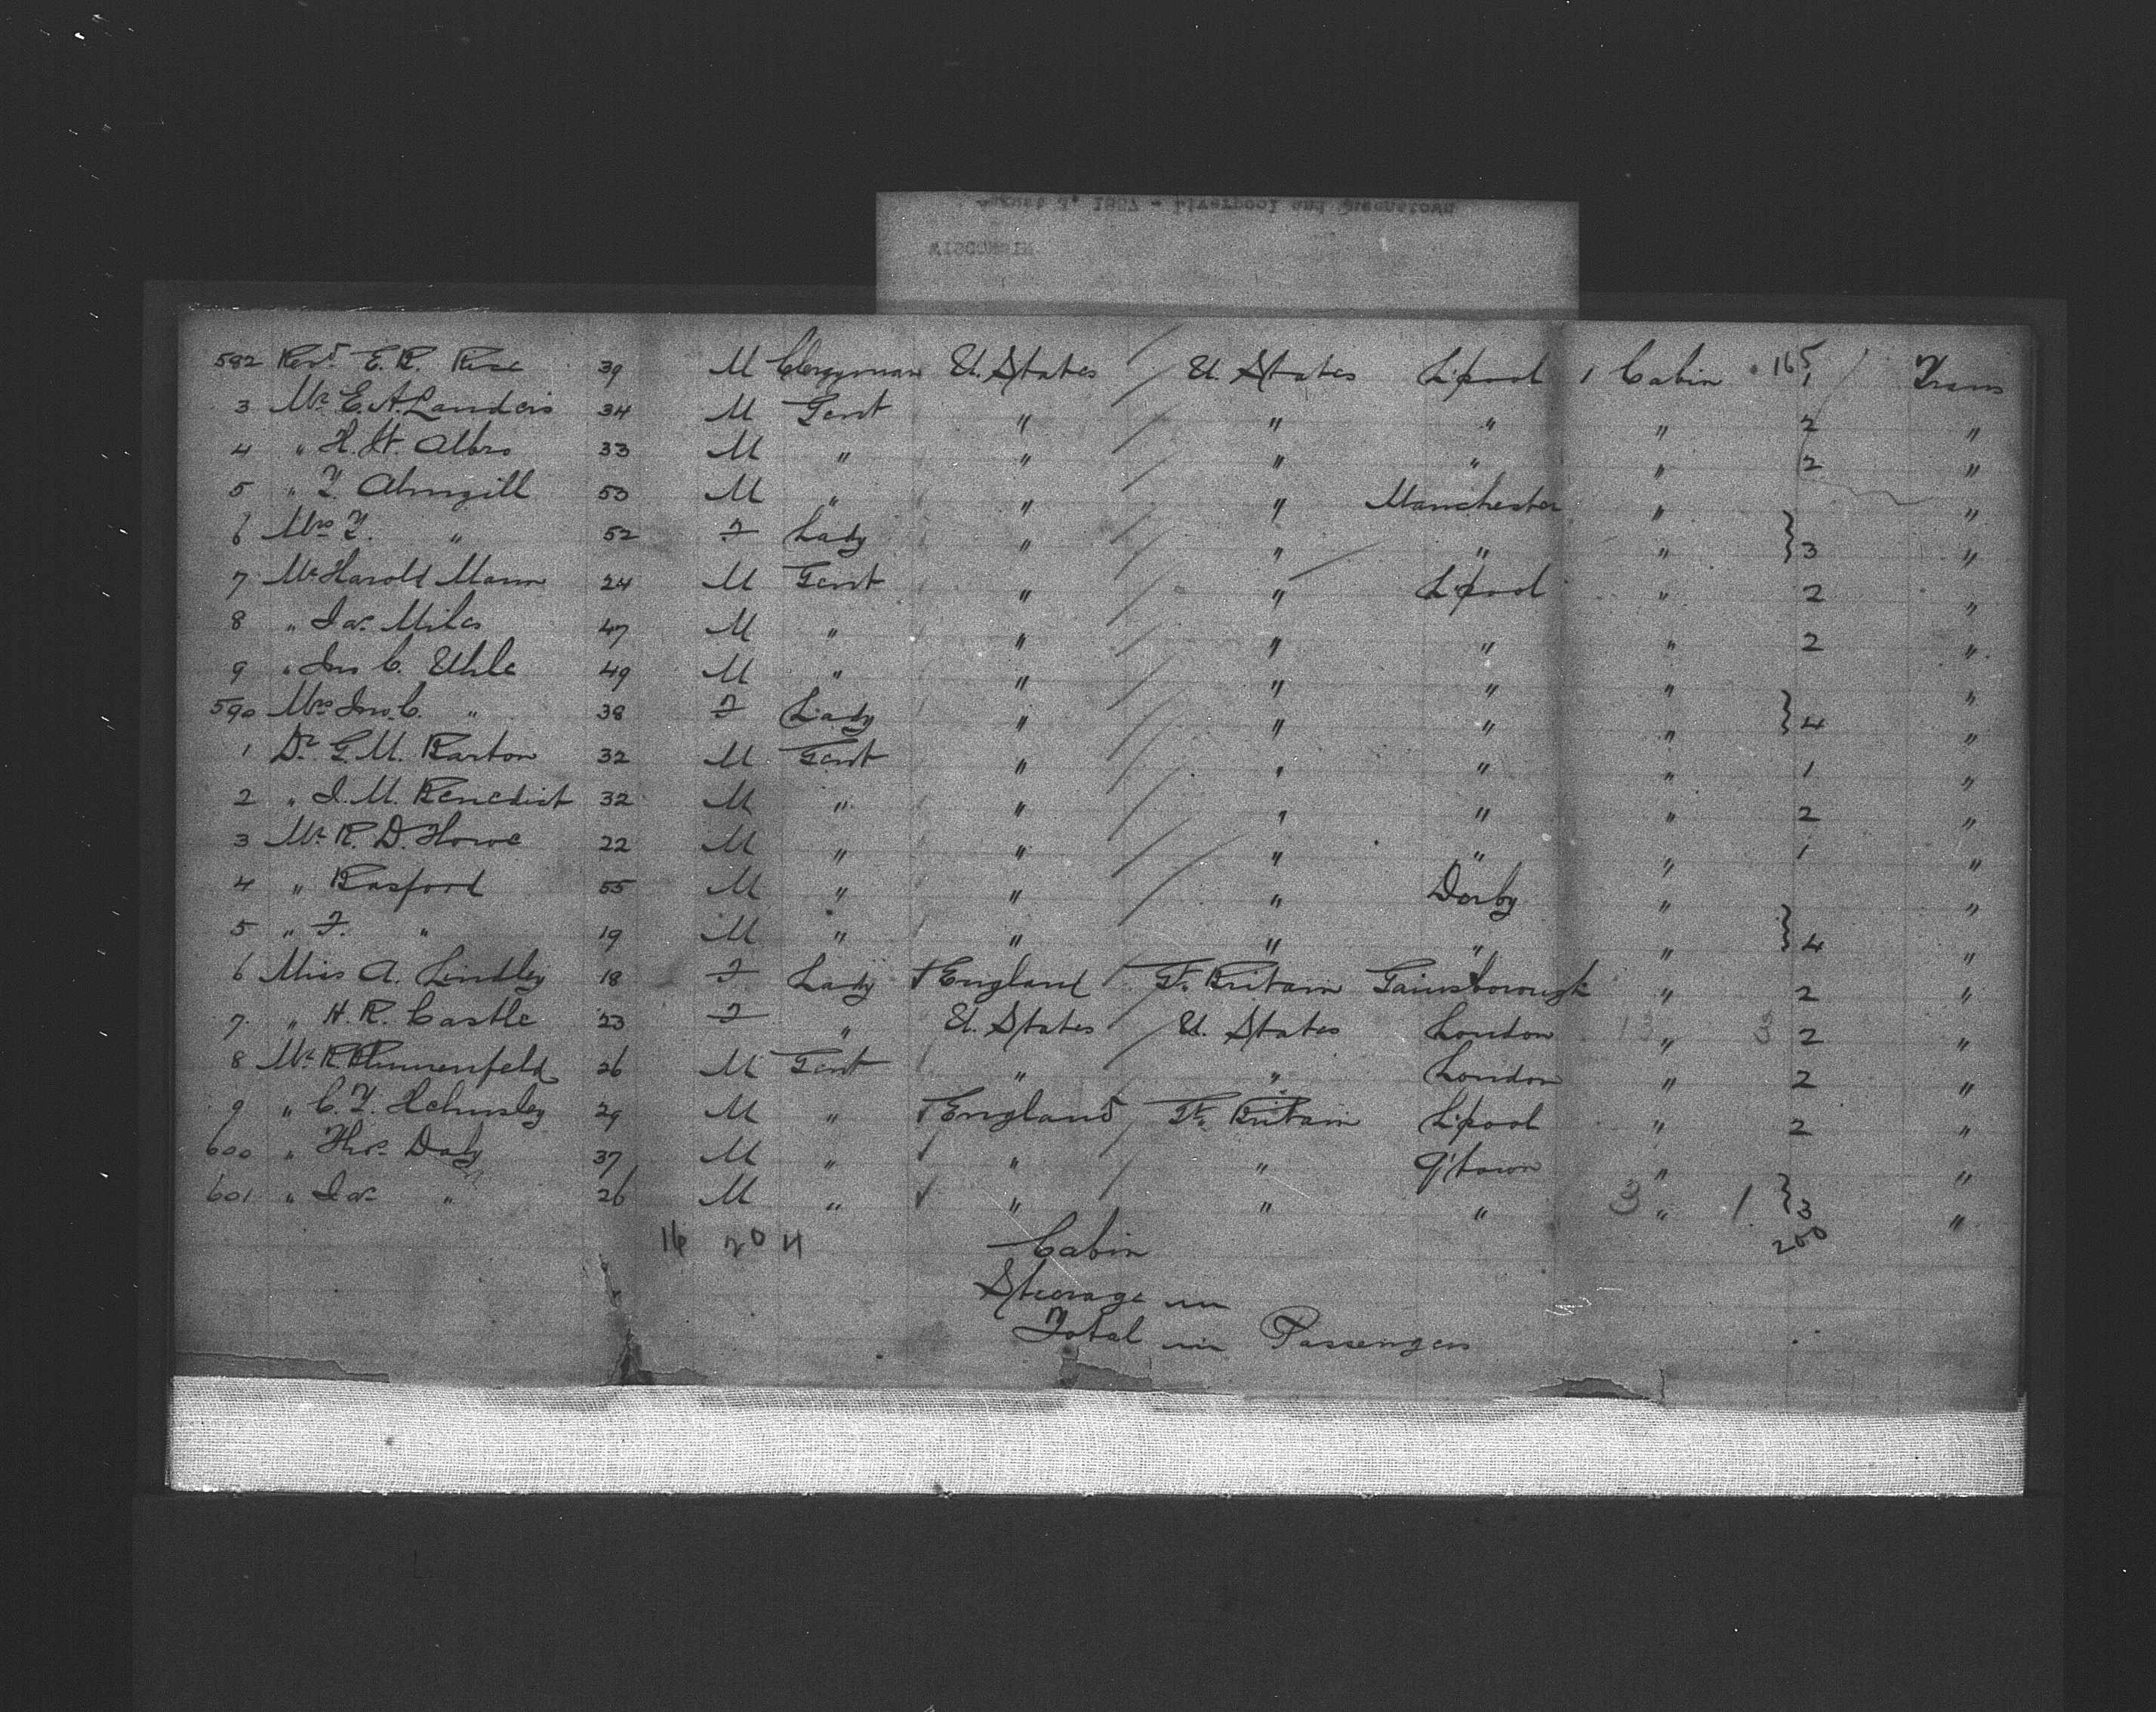 582 Revd. E. R. Rise 39 M Clergyman U. States U. States L'pool 1 Cabin 165 1 Trans
3 Mr. E. A. Landers 34 M Gent " " " " 2 "
4 " H. H. 33 M " " " " " 2 "
5 " T. 53 M " " " Manchester " "
6 Mrs. T. " 52 F Lady " " " " } 3 "
7 Mr. Harold Mann 24 M Gent " " L'pool " 2 "
8 " Jas. Miles 47 M " " " " " 2 "
9 " Jno C. Uhle 49 M " " " " " "
590 Mrs. Jno. C. " 38 F Lady " " " " } 4 "
1 Dr. G. M. Barton 32 M Gent " " " " 1 "
2 " J. M. Benedict 32 M " " " " " 2 "
3 Mr. R. D. Howe 22 M " " " " " 1 "
4 " Basford 55 M " " " Derby " "
5 " F. " 19 M " " " " " } 4 "
6 Miss A. Lindley 18 F Lady England Gt. Britain Gainsborough " 2 "
7 " H. R. Castle 23 F " U. States U. States London 13 " 3 2 "
8 Mr. R. Blumenfeld 26 M Gent " " London " 2 "
9 " C. T. Helmsley 29 M " England Gt. Britain L'pool " 2 "
600 " Thos. Daly 37 M " " " Q'town " "
601 " Jas. " 26 M " " " " 3 " 1 } 3 "
16 20 4 200
Cabin
Steerage
Total Passengers